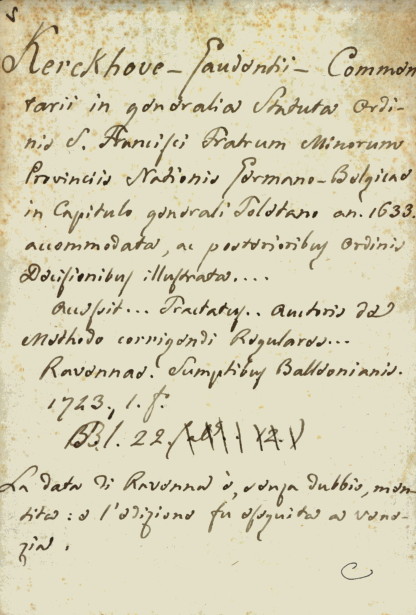 Kerckhove - Gaudentii - Commen
tarii in generalia Statuta Ordi-
nis S. Francisci Fratrum Minorum
Provinciis Nationis Germano-Belgicae
in Capitulo generali Toletano an. 1633.
accommodata, ac posterioribus Ordinis
Decisionibus illustrata....
Accessit... Tractatus.. Auctoris de
Methodo corrigendi Regulares...
Ravennae. Sumptibus Balleonianis.
1723., 1. f.
BB.l. 22.
La data di Ravenna è, senza dubbio, men
tita: e l'edizione fu eseguita a vene-
zia.
C